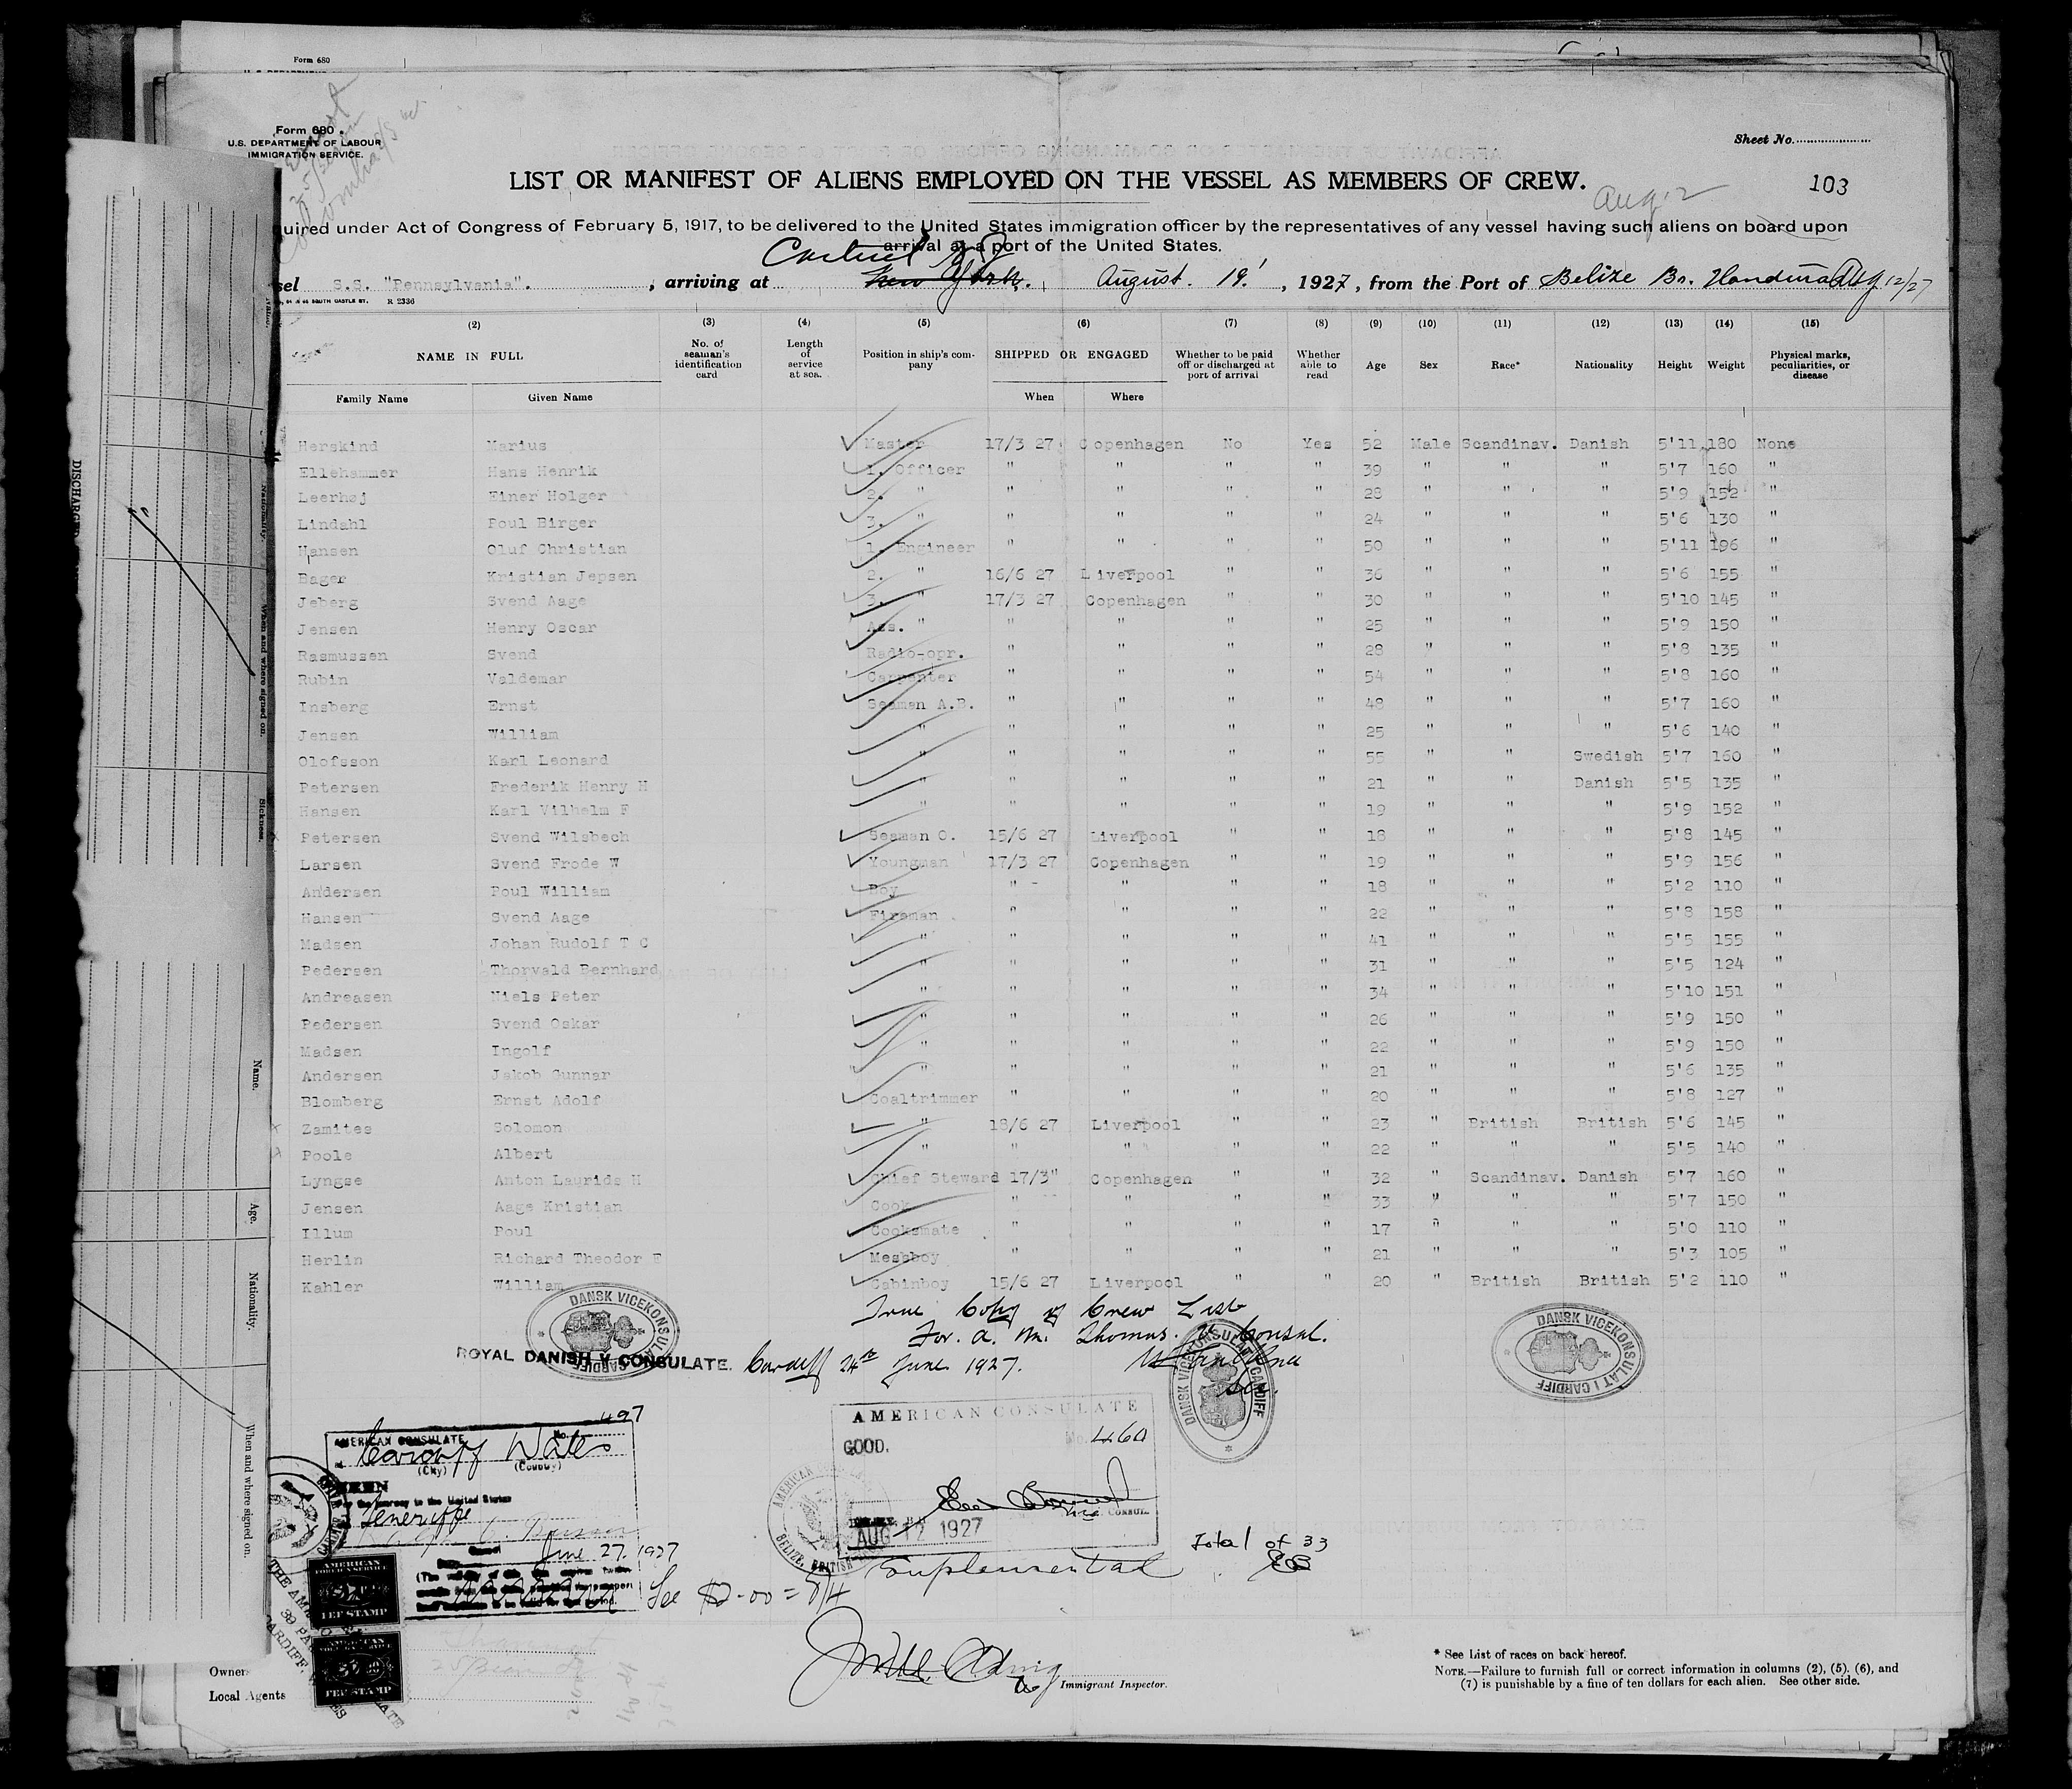 Form 680
Form 680.
U.S. DEPARTMENT OF LABOUR
IMMIGRATION SERVICE.
Sheet No.
LIST OR MANIFEST OF ALIENS EMPLOYED ON THE VESSEL AS MEMBERS OF CREW.
Aug 12
103
uired under Act of Congress of February 5, 1917, to be delivered to the United States immigration officer by the representatives of any vessel having such aliens on board upon
arrival at a port of the United States.
sel S.S. "Pennsylvania". , arriving at New York. August. 19. , 1927, from the Port of Belize Br. Honduras Aug 12/27
SOUTH CASTLE ST. R 2336
(2) (3) (4) (5) (6) (7) (8) (9) (10) (11) (12) (13) (14) (15)
NAME IN FULL No. of seaman's identification card Length of service at sea. Position in ship's company SHIPPED OR ENGAGED Whether to be paid off or discharged at port of arrival Whether able to read Age Sex Race* Nationality Height Weight Physical marks, peculiarities, or disease
Family Name Given Name When Where
Herskind Marius Master 17/3 27 Copenhagen No Yes 52 Male Scandinav. Danish 5'11 180 None
Ellehammer Hans Henrik 1. Officer " " " " 39 " " " 5'7 160 "
Leerhøj Einer Holger 2. " " " " " 28 " " " 5'9 152 "
Lindahl Poul Birger 3. " " " " " 24 " " " 5'6 130 "
Hansen Oluf Christian 1. Engineer " " " " 50 " " " 5'11 196 "
Bager Kristian Jepsen 2. " 16/6 27 Liverpool " " 36 " " " 5'6 155 "
Jeberg Svend Aage 3. " 17/3 27 Copenhagen " " 30 " " " 5'10 145 "
Jensen Henry Oscar Ass. " " " " " 25 " " " 5'9 150 "
Rasmussen Svend Radio-opr. " " " " 28 " " " 5'8 135 "
Rubin Valdemar Carpenter " " " " 54 " " " 5'8 160 "
Insberg Ernst Seaman A.B. " " " " 48 " " " 5'7 160 "
Jensen William " " " " " 25 " " " 5'6 140 "
Olofsson Karl Leonard " " " " " 55 " " Swedish 5'7 160 "
Petersen Frederik Henry H " " " " " 21 " " Danish 5'5 135 "
Hansen Karl Vilhelm F " " " " " 19 " " " 5'9 152 "
Petersen Svend Wilsbech Seaman O. 15/6 27 Liverpool " " 18 " " " 5'8 145 "
Larsen Svend Frode W Youngman 17/3 27 Copenhagen " " 19 " " " 5'9 156 "
Andersen Poul William Boy " " " " 18 " " " 5'2 110 "
Hansen Svend Aage Fireman " " " " 22 " " " 5'8 158 "
Madsen Johan Rudolf T C " " " " " 41 " " " 5'5 155 "
Pedersen Thorvald Bernhard " " " " " 31 " " " 5'5 124 "
Andreasen Niels Peter " " " " " 34 " " " 5'10 151 "
Pedersen Svend Oskar " " " " " 26 " " " 5'9 150 "
Madsen Ingolf " " " " " 22 " " " 5'9 150 "
Andersen Jakob Gunnar " " " " " 21 " " " 5'6 135 "
Blomberg Ernst Adolf Coaltrimmer " " " " 20 " " " 5'8 127 "
Zamites Solomon " 18/6 27 Liverpool " " 23 " British British 5'6 145 "
Poole Albert " " " " " 22 " " " 5'5 140 "
Lyngse Anton Laurids H Chief Steward 17/3" Copenhagen " " 32 " Scandinav. Danish 5'7 160 "
Jensen Aage Kristian Cook " " " " 33 " " " 5'7 150 "
Illum Poul Cooksmate " " " " 17 " " " 5'0 110 "
Herlin Richard Theodor E Messboy " " " " 21 " " " 5'3 105 "
Kahler William Cabinboy 15/6 27 Liverpool " " 20 " British British 5'2 110 "
True Copy of Crew List
For. A. M. Thomas. V. Consul.
ROYAL DANISH V. CONSULATE. Cardiff 24th June 1927.
DANSK VICEKONSULAT I CARDIFF
DANSK VICEKONSULAT I CARDIFF
DANSK VICEKONSULAT I CARDIFF
497
AMERICAN CONSULATE No.
Cardiff Wales
(City) (Country)
SEEN
For the journey to the United States
Teneriffe
June 27. 1927
AMERICAN CONSULATE
GOOD. No. 460
CONSUL
AUG 12 1927
BELIZE, BRITISH
Suplemental
Total of 33
Fee $2-00 = 8/4
AMERICAN
FEE STAMP
AMERICAN
FEE STAMP
Immigrant Inspector.
Owner
Local Agents
* See List of races on back hereof.
NOTE.—Failure to furnish full or correct information in columns (2), (5). (6), and
(7) is punishable by a fine of ten dollars for each alien. See other side.
Nationality.
When and where signed on.
Sickness.
Name.
Age.
Nationality.
When and where signed on.